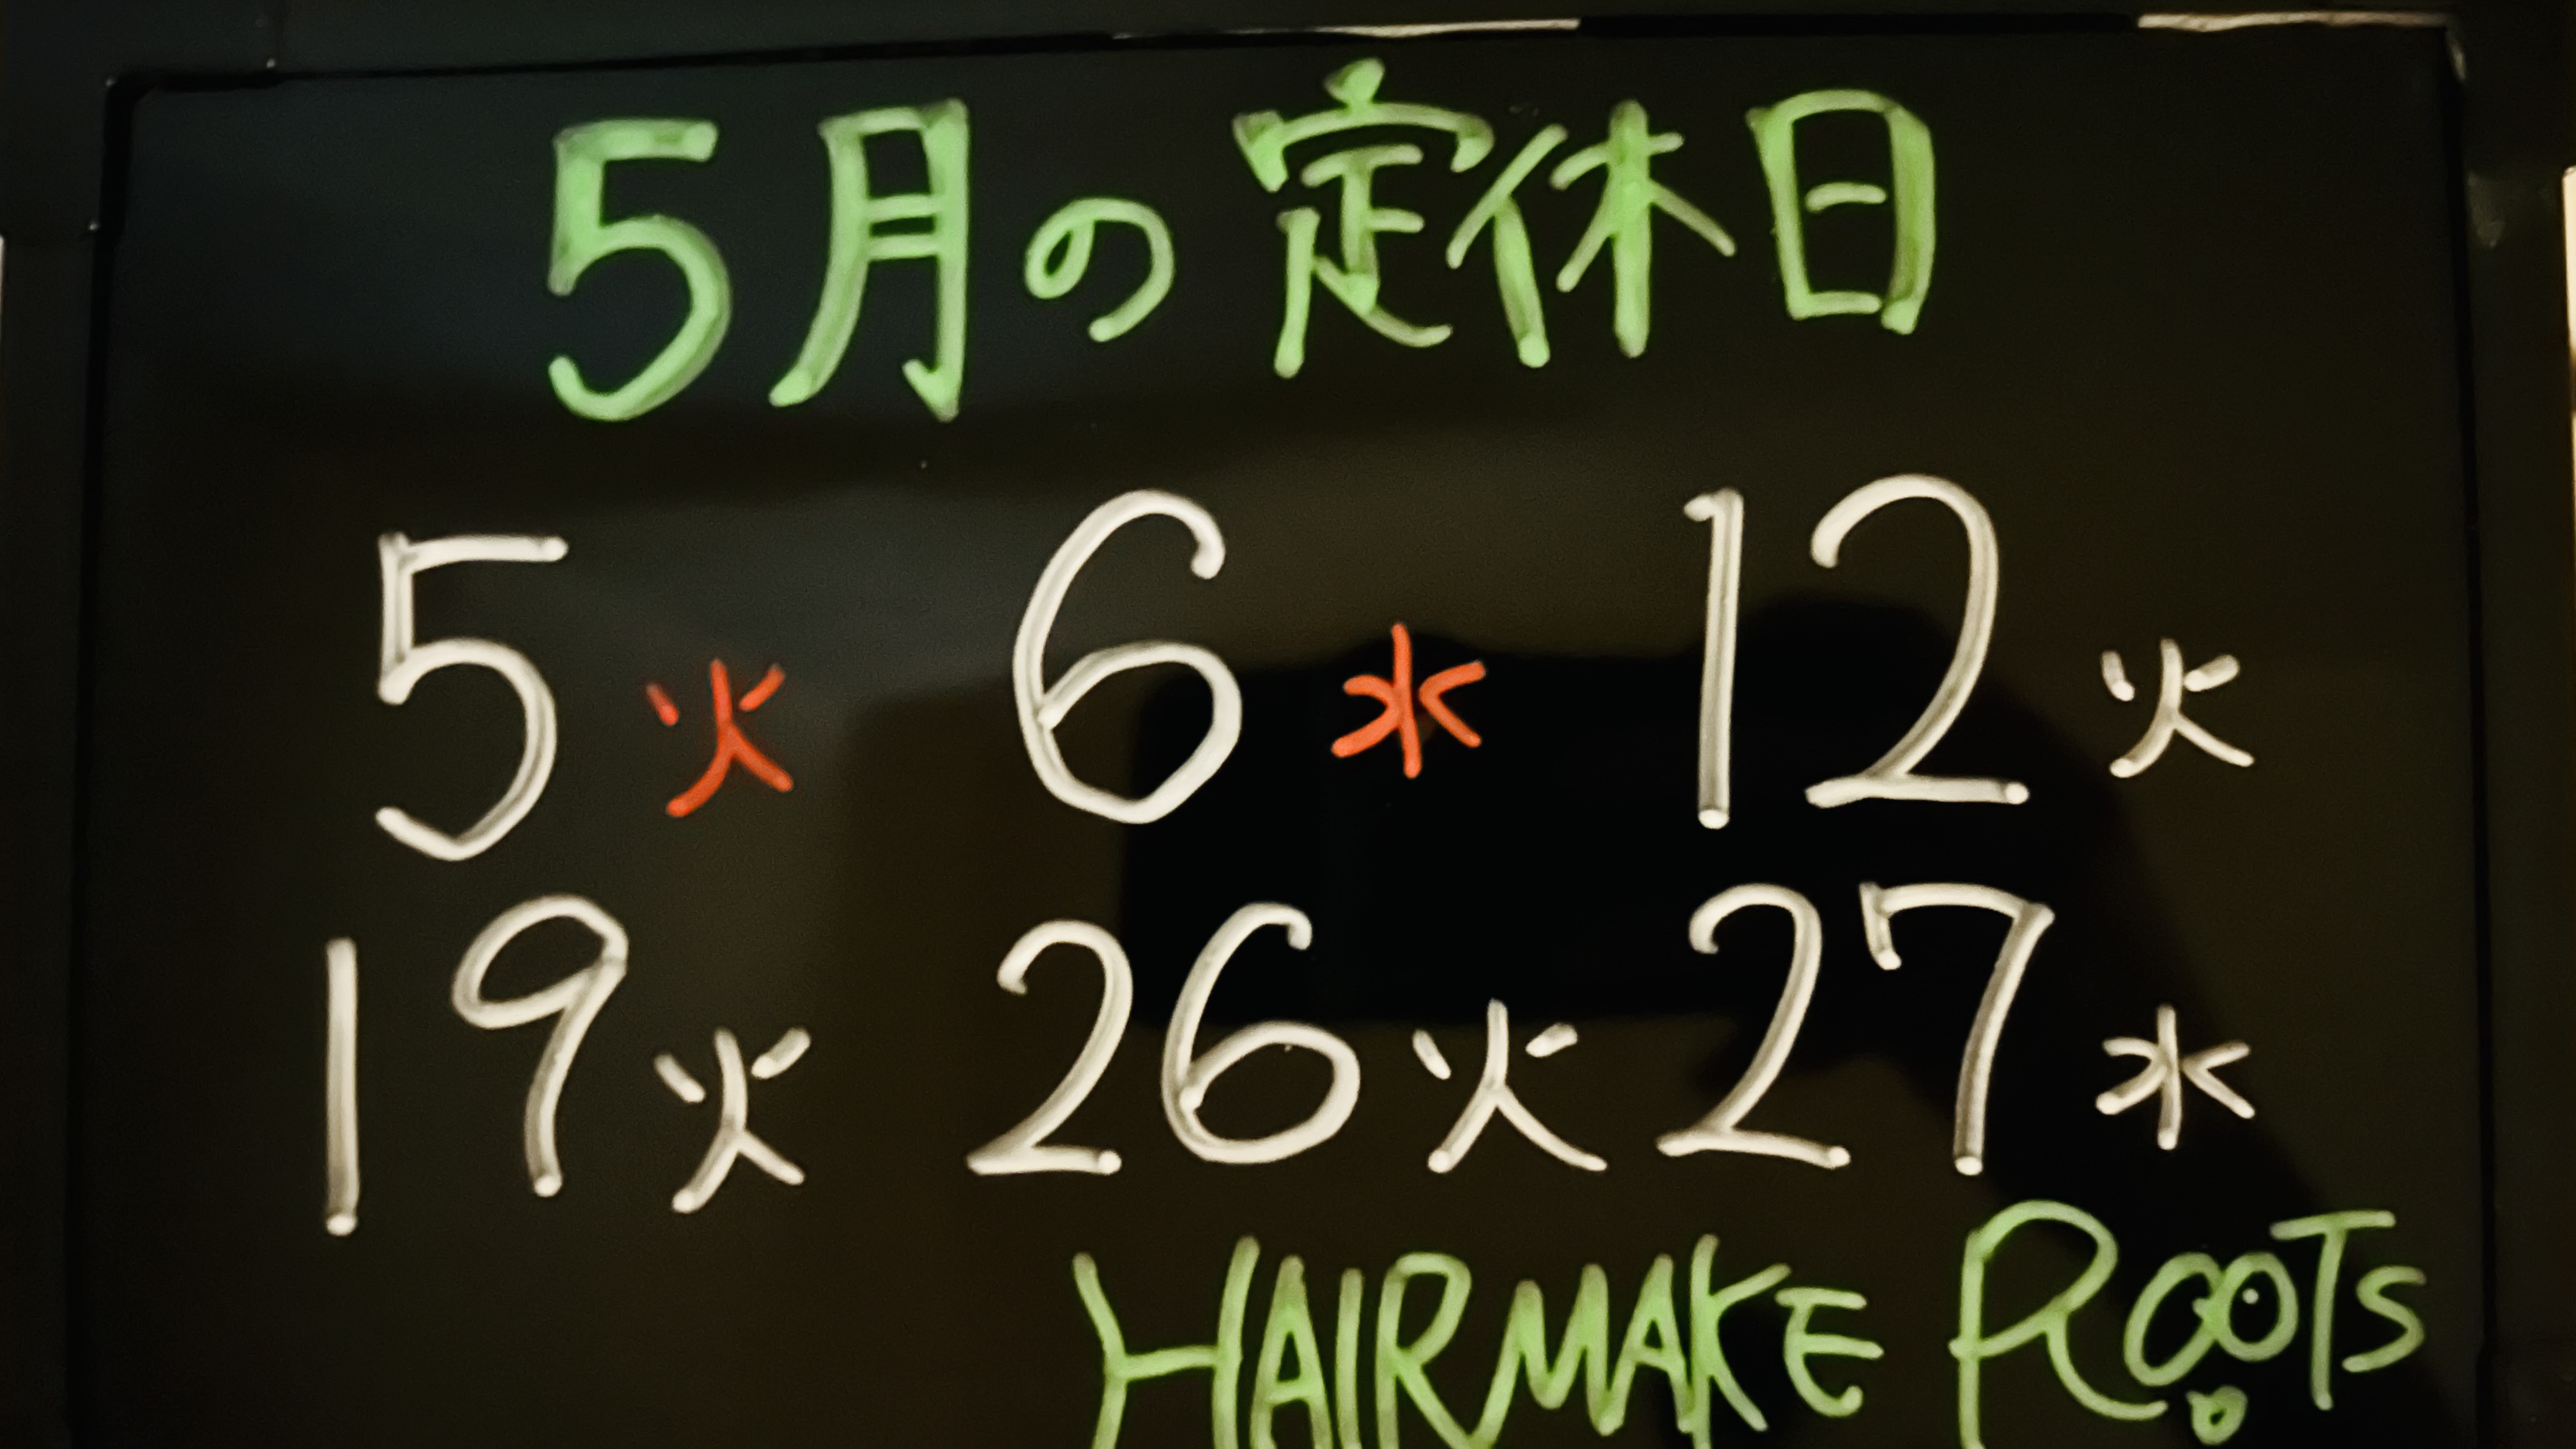 5月の定休日
5火 6水 12火
19火 26火 27水
HAIRMAKE ROOTS